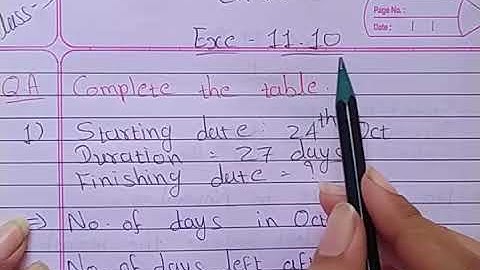 Class -
Page No.:
Date:
Exc - 11.10
QA Complete the table.
1) Starting date: 24th Oct
Duration = 27 days
Finishing date = ?
⇒ No. of days in Oct
No. of days left aft